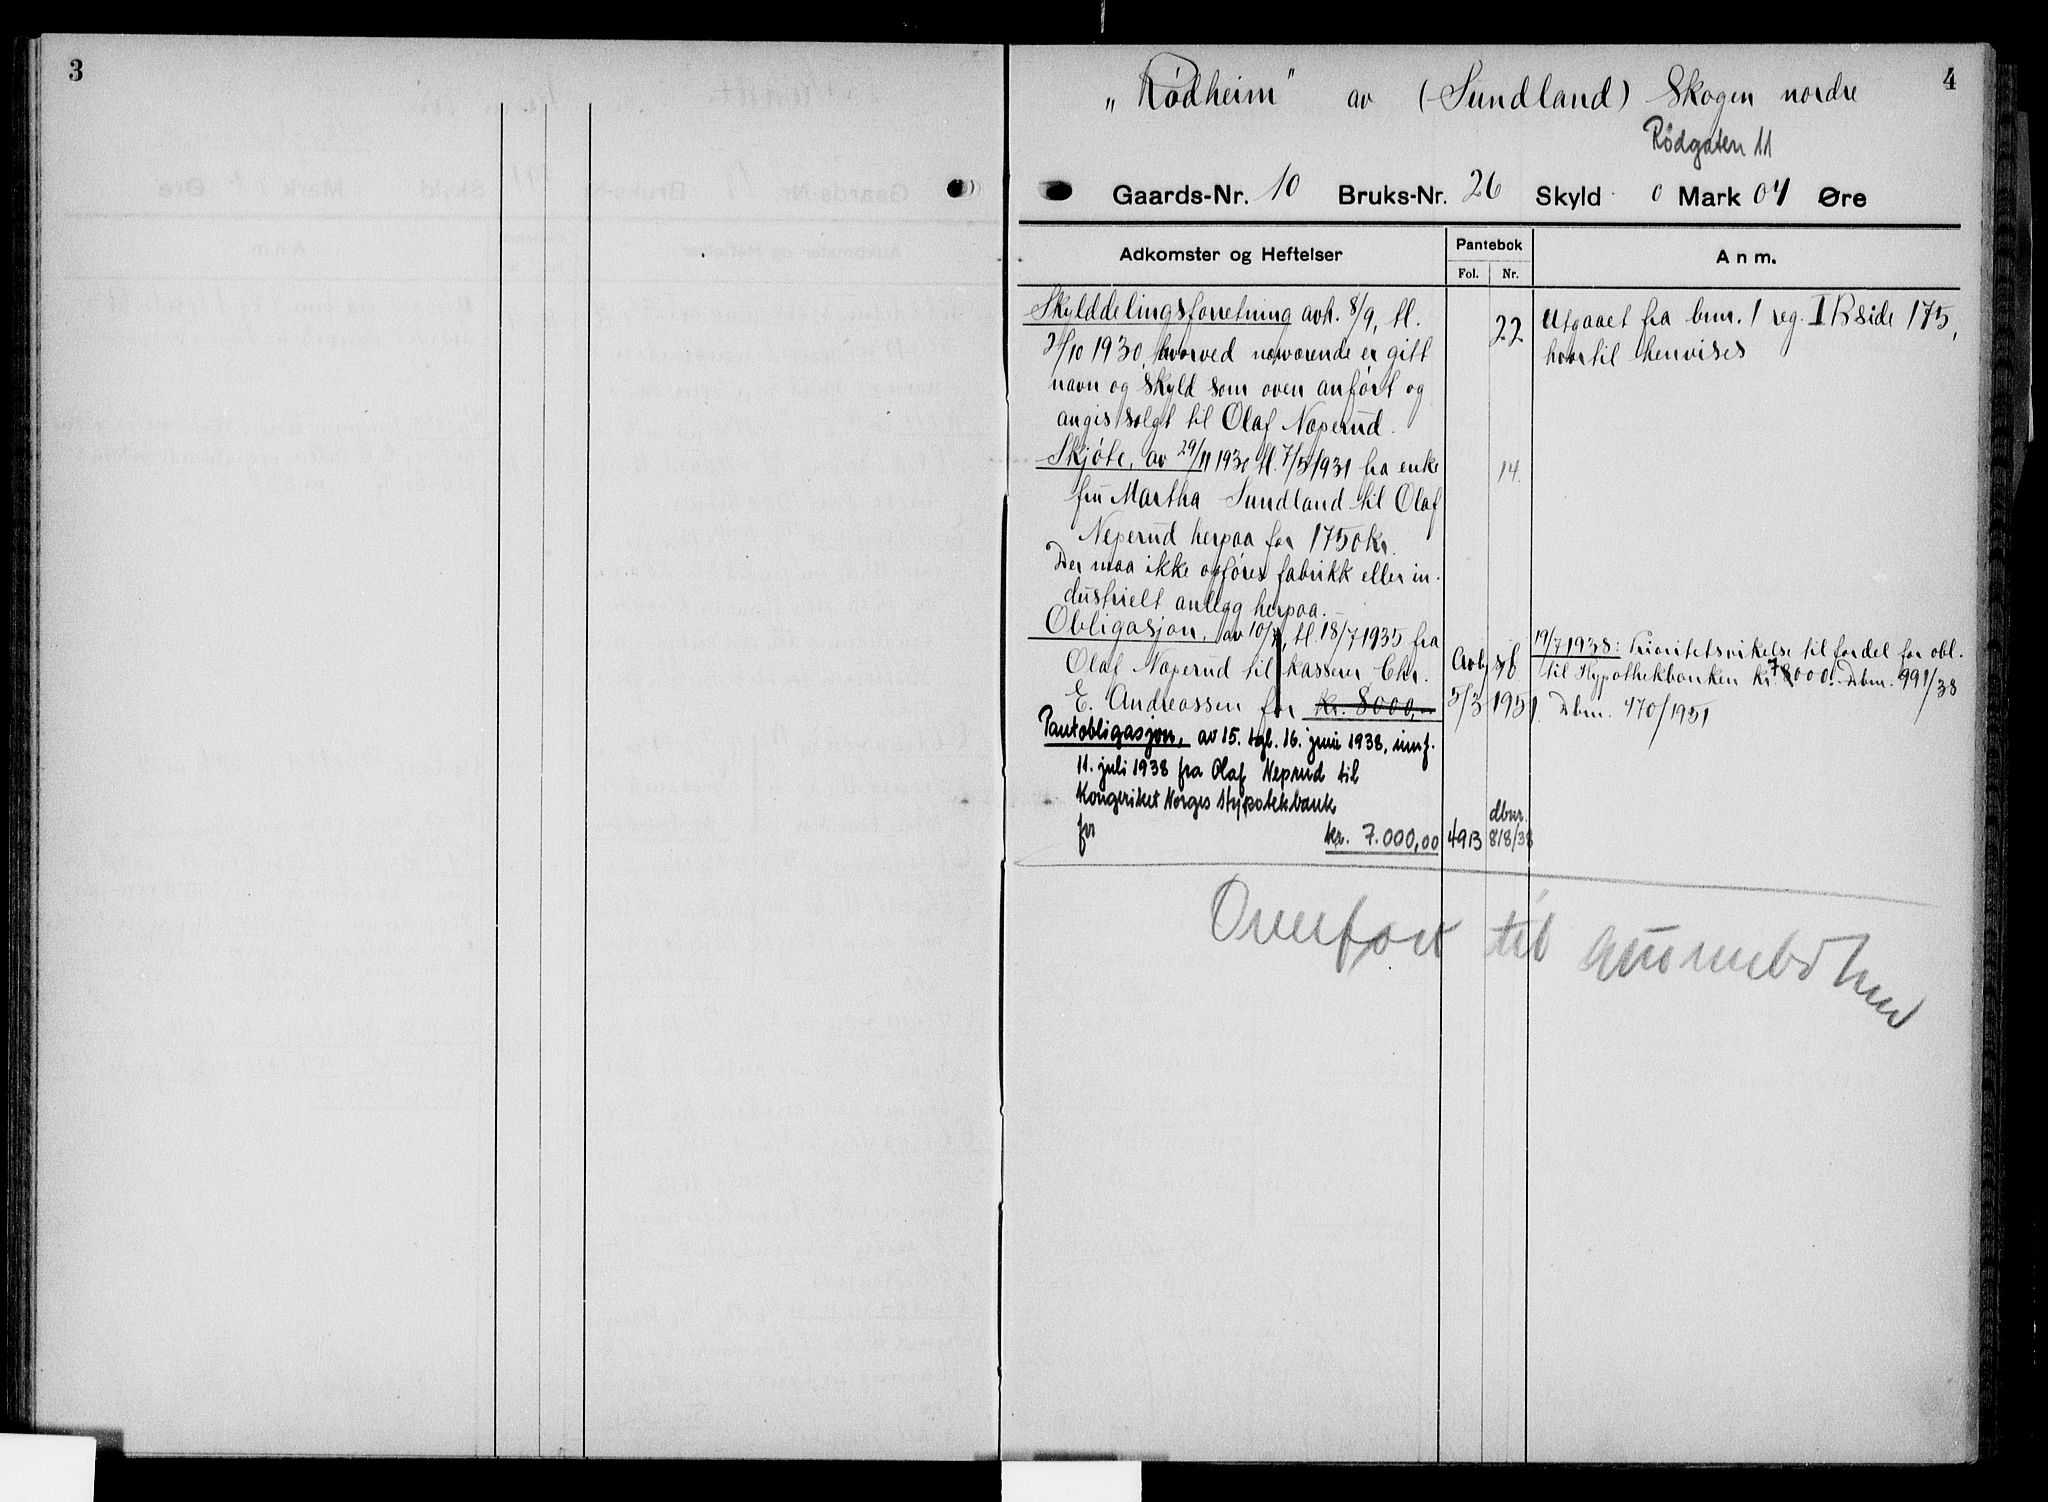 3
4
„Rødheim" av (Sundland) Skogen nordre
Rødgaten 11
Gaards-Nr. 10 Bruks-Nr. 26 Skyld 0 Mark 04 Øre
Adkomster og Heftelser
Pantebok
Fol. Nr.
Anm.
Skylddelingsforretning avh. 8/9, tl.
/10 1930, hvorved nærværende er gitt
navn og skyld som oven anført og
angis solgt til Olaf Næperud.
22
Utgaaet fra bnr. 1 reg. I B side 175,
hvortil henvises
Skjøte, av 29/11 1930 tl. 7/5 1931 fra enke
fru Martha Sundland til Olaf
Neperud herpaa for 1750 kr.
14.
Der maa ikke opføres fabrikk eller in-
dustrielt anlegg herpaa.—
Obligasjon, av 10/7, tl. 18/7 1935 fra
Olaf Næperud til kasserer Chr.
E. Andreassen for kr. 8000,-
Avlyst
5/3 1951.
19/7 1938: Prioritetsvikelse til fordel for obl.
til Hypothekbanken kr. 7000.- Dbnr. 991/38
Dbnr. 470/1951
Pantobligasjon, av 15. tgl. 16. juni 1938, innf.
11. juli 1938 fra Olaf Neprud til
Kongeriket Norges Hypotekbank
for kr. 7.000,00
49B
dbnr.
818/38
Overført til